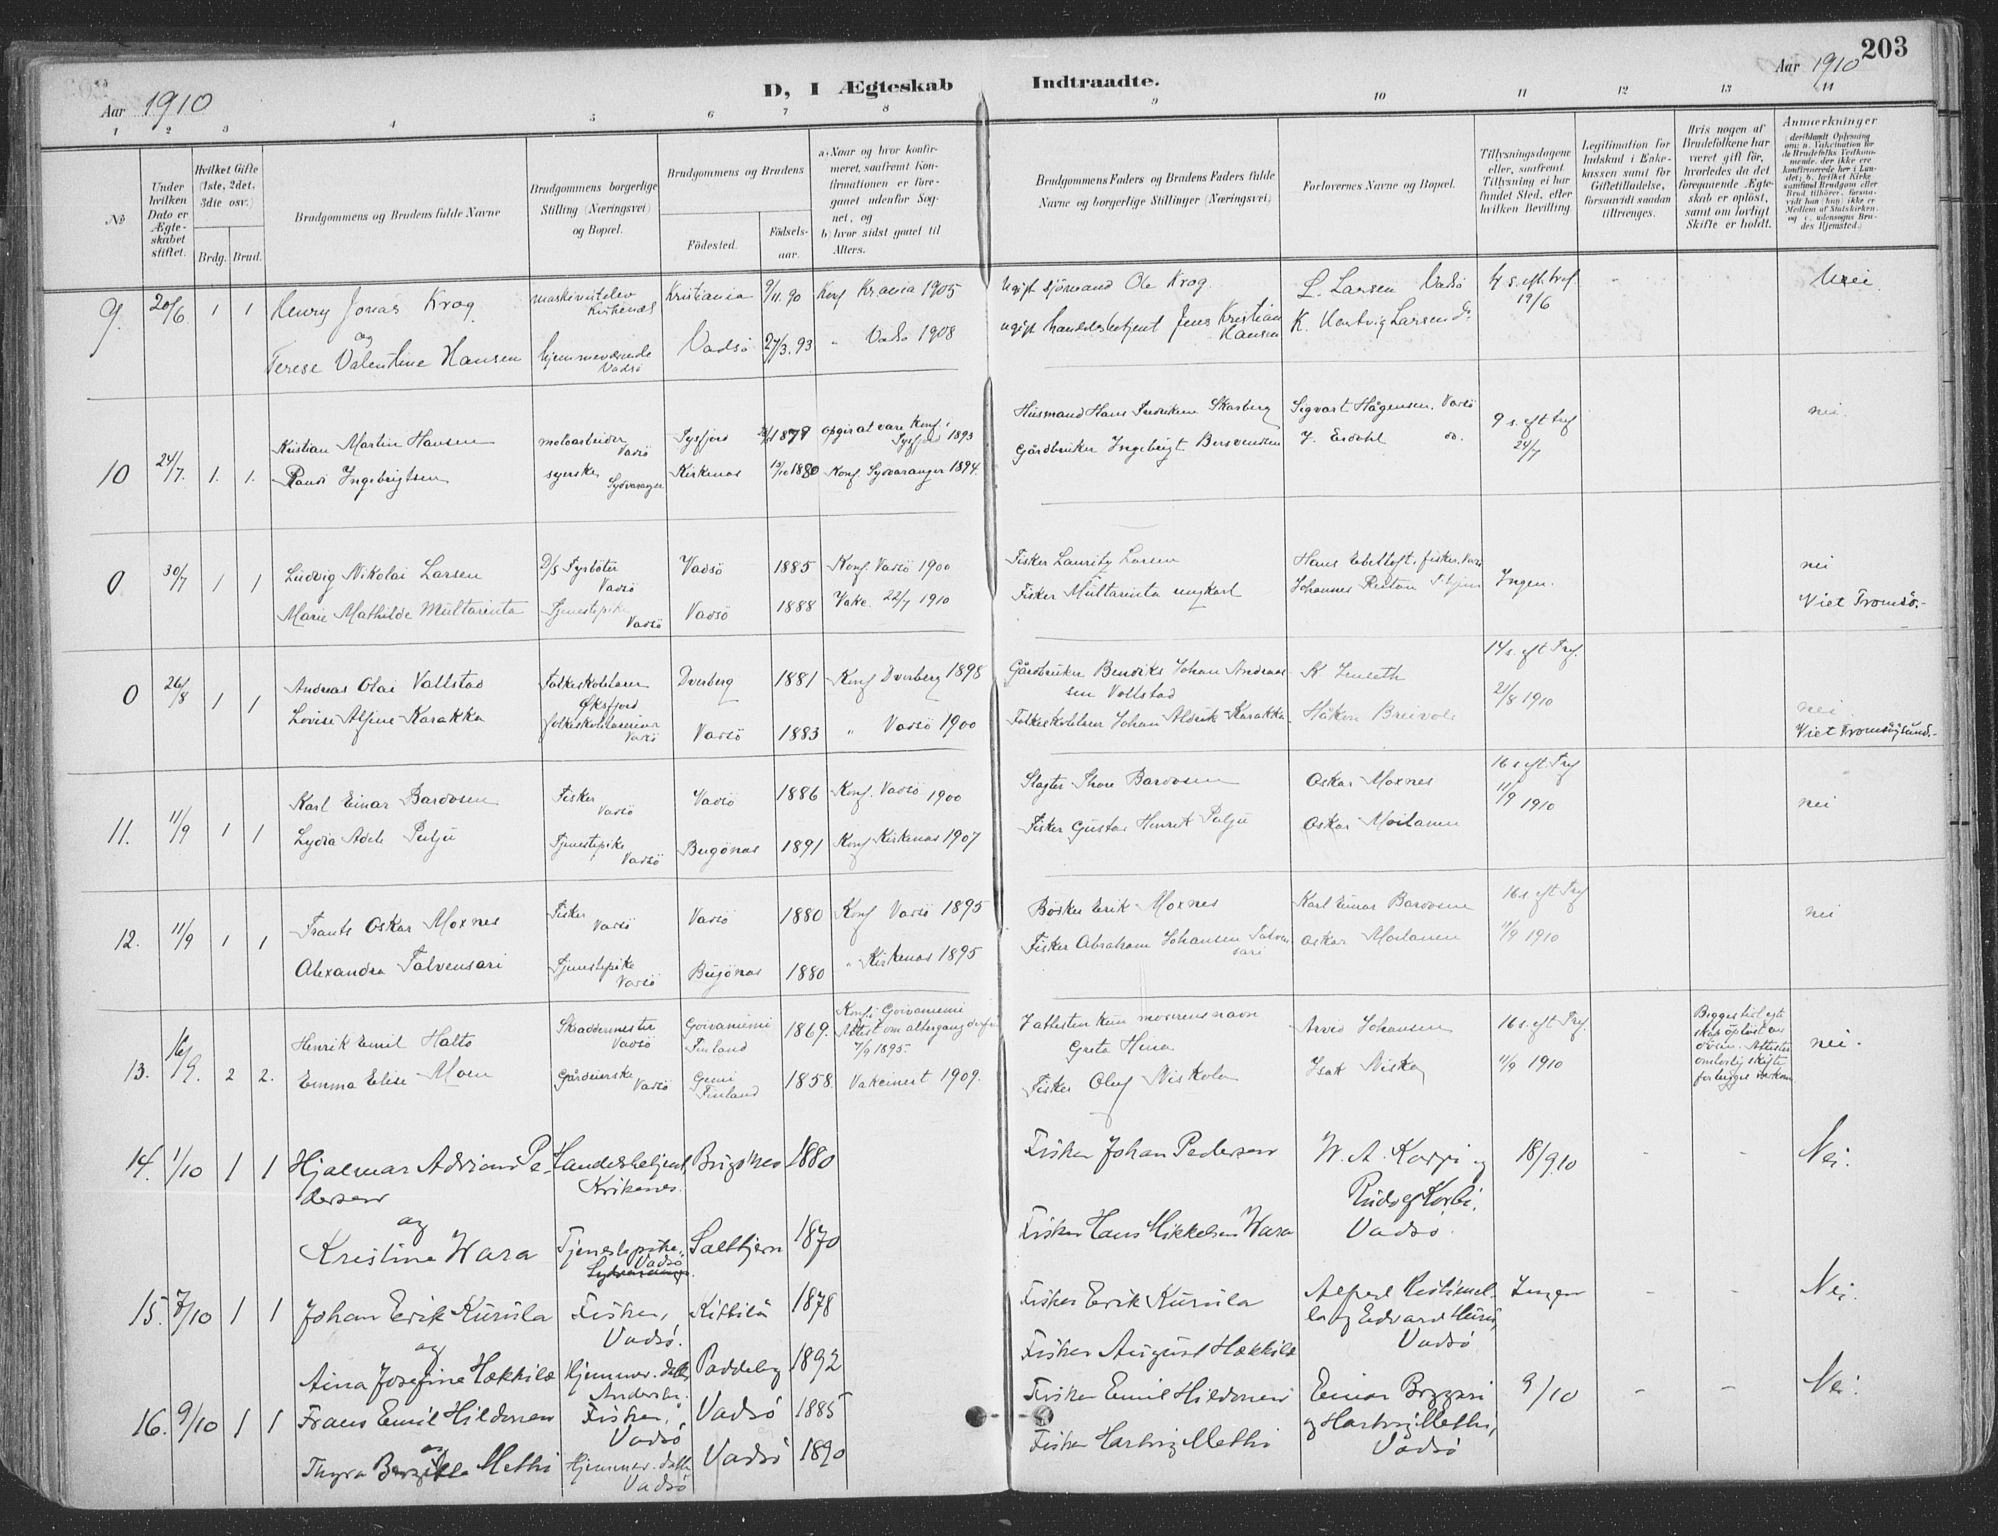 203
Aar 1910
D, I Ægteskab Indtraadte.
Aar 1910
1 2 3 4 5 6 7 8 9 10 11 12 13 14
No
Under hvilken Dato er Ægteskabet stiftet.
Hvilket Gifte (1ste, 2det, 3die osv.)
Brdg. Brud.
Brudgommens og Brudens fulde Navne
Brudgommens borgerlige Stilling (Næringsvei) og Bopæl.
Brudgommens og Brudens
Fødested.
Fødselsaar.
a) Naar og hvor konfirmeret, saafremt Konfirmationen er foregaaet udenfor Sognet, og
b) hvor sidst gaaet til Alters.
Brudgommens Faders og Brudens Faders fulde Navne og borgerlige Stillinger (Næringsvei)
Forlovernes Navne og Bopæl.
Tillysningsdagene eller, saafremt Tillysning ei har fundet Sted, efter hvilken Bevilling
Legitimation for Indskud i Enkekassen samt for Giftetilladelse, forsaavidt saadan tiltrænges.
Hvis nogen af Brudefolkene har været gift før, hvorledes da det foregaaende Ægteskab er opløst, samt om lovligt Skifte er holdt.
Anmærkninger
9. 20/6 1 1 Henry Jonas Krog Kirkenæs Kristiania 9/11.90 Konf Krania 1905 Ugift sjömand Ole Krog. L. Larsen Vadsö 4 s. eft. tref 19/6
og
Terese Valentine Hansen hjemmeværende Vadsö Vadsö 27/3.93 " Vadsö 1908 ugift handelsbetjent Jens Kristian Hansen K. Hartvig Larsen do
10 24/7. 1. 1. Kristian Martin Hansen Vadsö Tysfjord opgir at være Konf. i Tysfjord 1893 Husmand Hans Fredriksen Skarberg Sigvart Hågensen, Vadsö 9 s. eft tref 24/7 nei.
Randi Ingebrigtsen syerske Sydvaranger Kirkenæs Konf. Sydvaranger 1894. Gårdbruker Ingebrigt Bersvendsen do.
0 30/7 1 1 Ludvig Nikolai Larsen Vadsö Vadsö 1885 Konf. Vadsö 1900 Fisker Lauritz Larsen Hans Ebeltoft, fisker, Vadsö Ingen. nei
Marie Mathilde Multarinta Tjenestepike Vadsö Vadsö 1888 22/7 1910 Fisker Multarinta ungkarl Johannes Viet Tromsö.-
0 26/8 1 1 Andreas Olai Vallstad Folkeskolelærer Øksfjord Dverberg 1881 Konf Dverberg 1898 Gårdbruker Bendiks Johan Andreassen Vallstad 14 s. eft Tref. 21/8 1910 nei.
Lovise Alfine Karakka folkeskolelærerinne Vadsö Vadsö 1883 " Vadsö 1900 Folkeskolelærer Johan Aldrik Karakka Håkon Viet Tromsöysund.-
11. 11/9 1 1 Karl Einar Bardosen Fisker Vadsö Vadsö 1886 Konf. Vadsö 1900 Slagter Bardosen Oskar Moxnes 16 s eft Tref 11/9 1910 nei
Lydia Adele Palju Tjenestepike Vadsö Bugönæs 1891 Konf Kirkenæs 1907 Fisker Gustav Henrik Palju Oskar Moilanen
12. 11/9 1 1 Frants Oskar Moxnes Fisker Vadsö Vadsö 1880 Konf Vadsö 1895 Bödker Erik Moxnes Karl Einar Bardosen 16 s. eft Tref 11/9 1910 nei
Alexandra Talvensari Tjenestepike Vadsö Bugönæs 1880 " Kirkenæs 1895 Fisker Abraham Johansen Talvensari Oskar Moilanen
13. 16/9. 2 2. Henrik Emil Halto Skreddermester Vadsö Goivaniemi Finland 1869. Konf. i Goivaniemi Attest om altergang derfra 7/9 1895. I attesten kun moderens navn Greta Hena Arvid Johansen 16 s. eft Tref. 11/9 1910 nei.
Emma Elise Moen Gårdeierske Vadsö Finland 1858. Vakcinert 1909. Fisker Oluf Niskola Isak Niska
14. 1/10 1 1 Hjalmar Adrian Pedersen Handelsbetjent, Kirkenes. Bugönes 1880 Fisker Johan Pedersen W. A. Karpi og 18/9 10 - - Nei.
og
Kristine Wara Tjenestepike, Vadsö Saltbjern 1870 Fisker Hans Mikkelsen Wara Vadsö.
15. 7/10 1 1 Johan Erik Kurula Fisker, Vadsö. Kittilä 1878 Fisker Erik Kurula Alfred Ingen - - Nei.
og
Aina Josefine Hækkilæ Hjemmev. datter Paddeby 1892 Fisker August Hækkilæ Vadsö
16. 9/10 1 1 Frans Emil Hildonen Fisker, Vadsö Vadsö 1885 Fisker Emil Hildonen Einar 9/10 - - Nei.
og
Thyra Methi Hjemmev. datter Vadsö Vadsö 1890 Fisker Hartvig Methi og Hartvig Methi, Vadsö